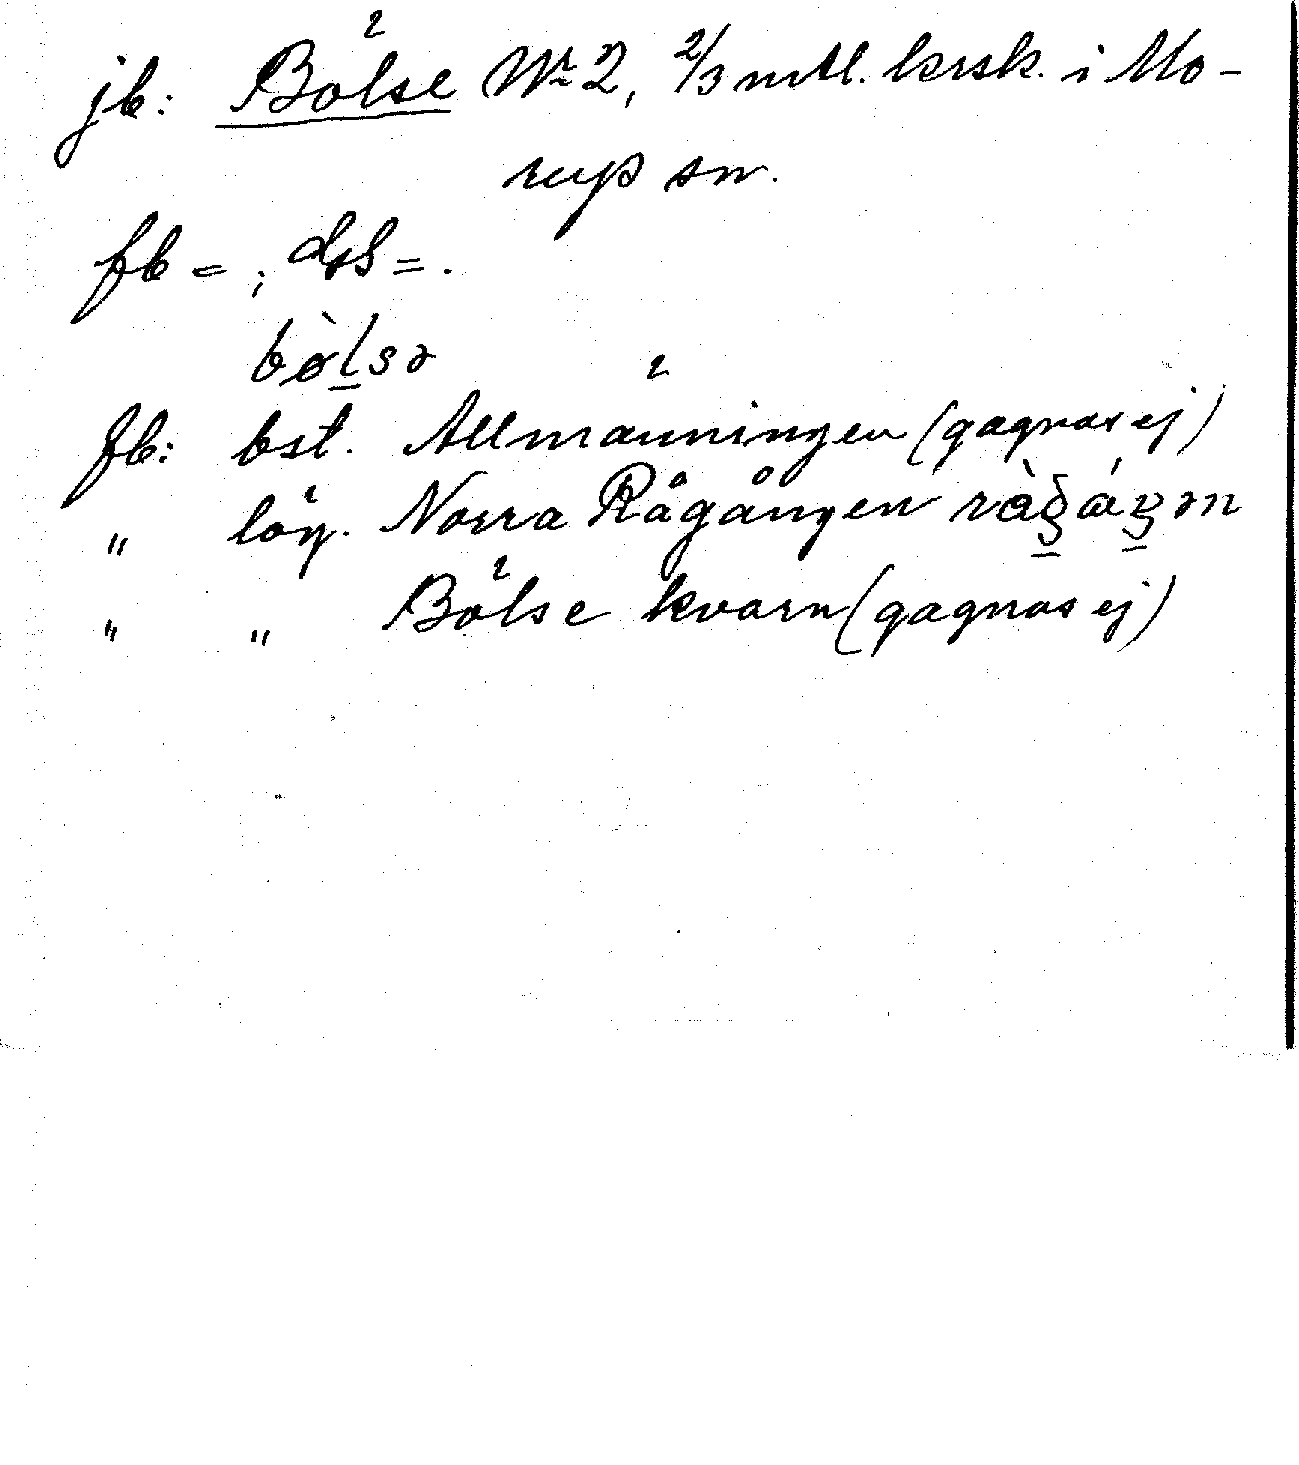 jb: Bölse № 2, 2/3 mtl. krsk. i Mo-
rup sn.
fb = ; dgs = .
bø̀lsə
fb: bst. Allmänningen (gagnas ej)
" läg. Norra Rågången
" " Bölse kvarn (gagnas ej)